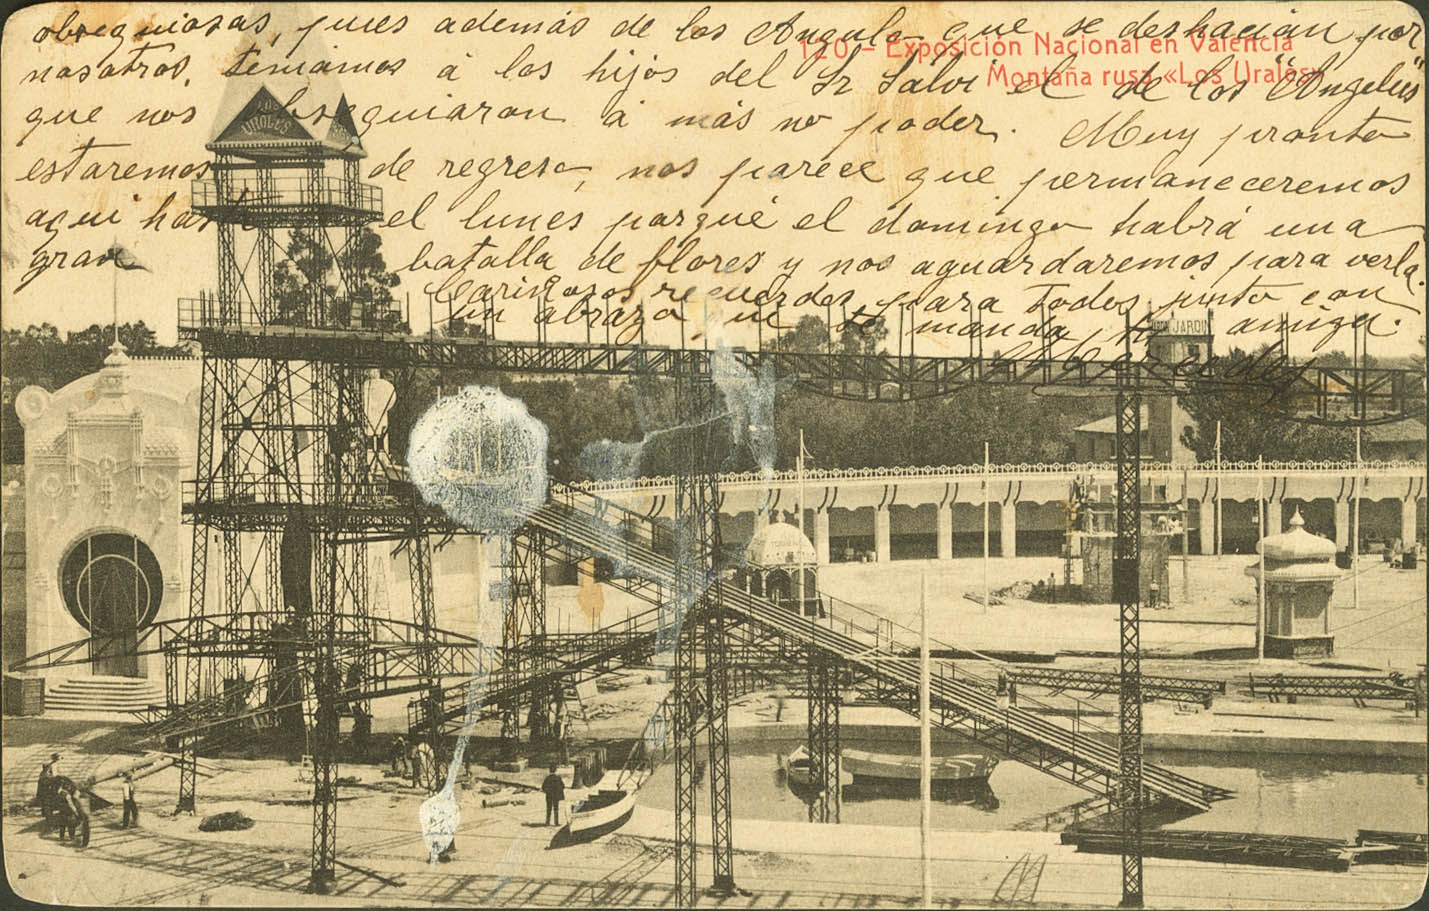 obsequiosas, pues además de los Angulo que se deshacían por
120. - Exposición Nacional en Valencia
Montaña rusa «Los Urales»
nosotros, teníamos á los hijos del Sr Salvi el de los "Angelus"
que nos obsequiaron á más no poder. Muy pronto
estaremos de regreso, nos parece que permaneceremos
aquí hasta el lunes porqué el domingo habrá una
gran batalla de flores y nos aguardaremos para verla.
Cariñosos recuerdos para todos junto con
un abrazo que te manda tu amiga.
Mercedes
LOS
UROLES
JARDIN